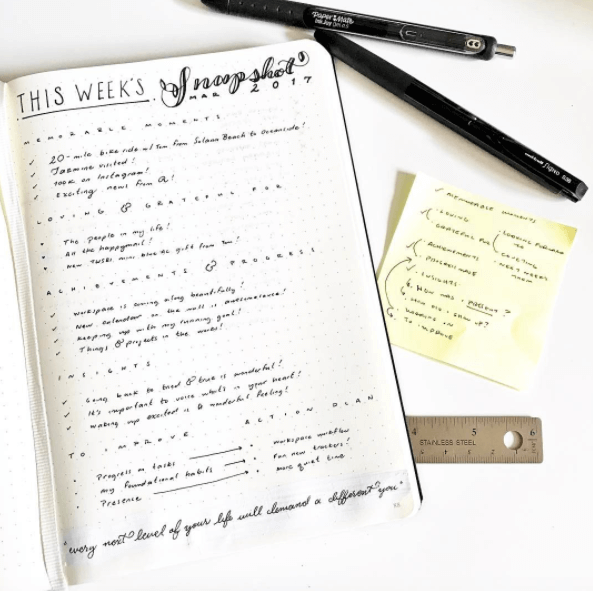 THIS WEEK'S Snapshot
MAR 2017
MEMORABLE MOMENTS
✓ 20-mile bike ride w/ Tom from Solana Beach to Oceanside!
✓ Jasmine visited!
✓ 100K on Instagram!
✓ Exciting news from A!
LOVING & GRATEFUL FOR
• The people in my life!
• All the happymail!
• New TWSBI mini gift from Tom!
ACHIEVEMENTS & PROGRESS
✓ Workspace is coming along beautifully!
✓ New calendar on the wall is awesome!
✓ Keeping up with my running goal!
✓ Things & projects in the works!
INSIGHTS
✓ Going back to tried & true is wonderful!
✓ It's important to voice what's in your heart!
✓ Waking up excited is a wonderful feeling!
TO IMPROVE ACTION PLAN
• Progress on tasks → • workspace workflow
• my foundational habits → • Fun new trackers!
• Presence → • more quiet time
"every next level of your life will demand a different you"
PaperMate
InkJoy
uni-ball Signo 0.38
✓ MEMORABLE MOMENTS
LOVING
GRATEFUL FOR
LOOKING FORWARD TO
ACHIEVEMENTS
PROGRESS MADE
✓ INSIGHTS
HOW WAS I
HOW DID I SHOW UP?
WORKING ON
TO IMPROVE
4 5 6
STAINLESS STEEL